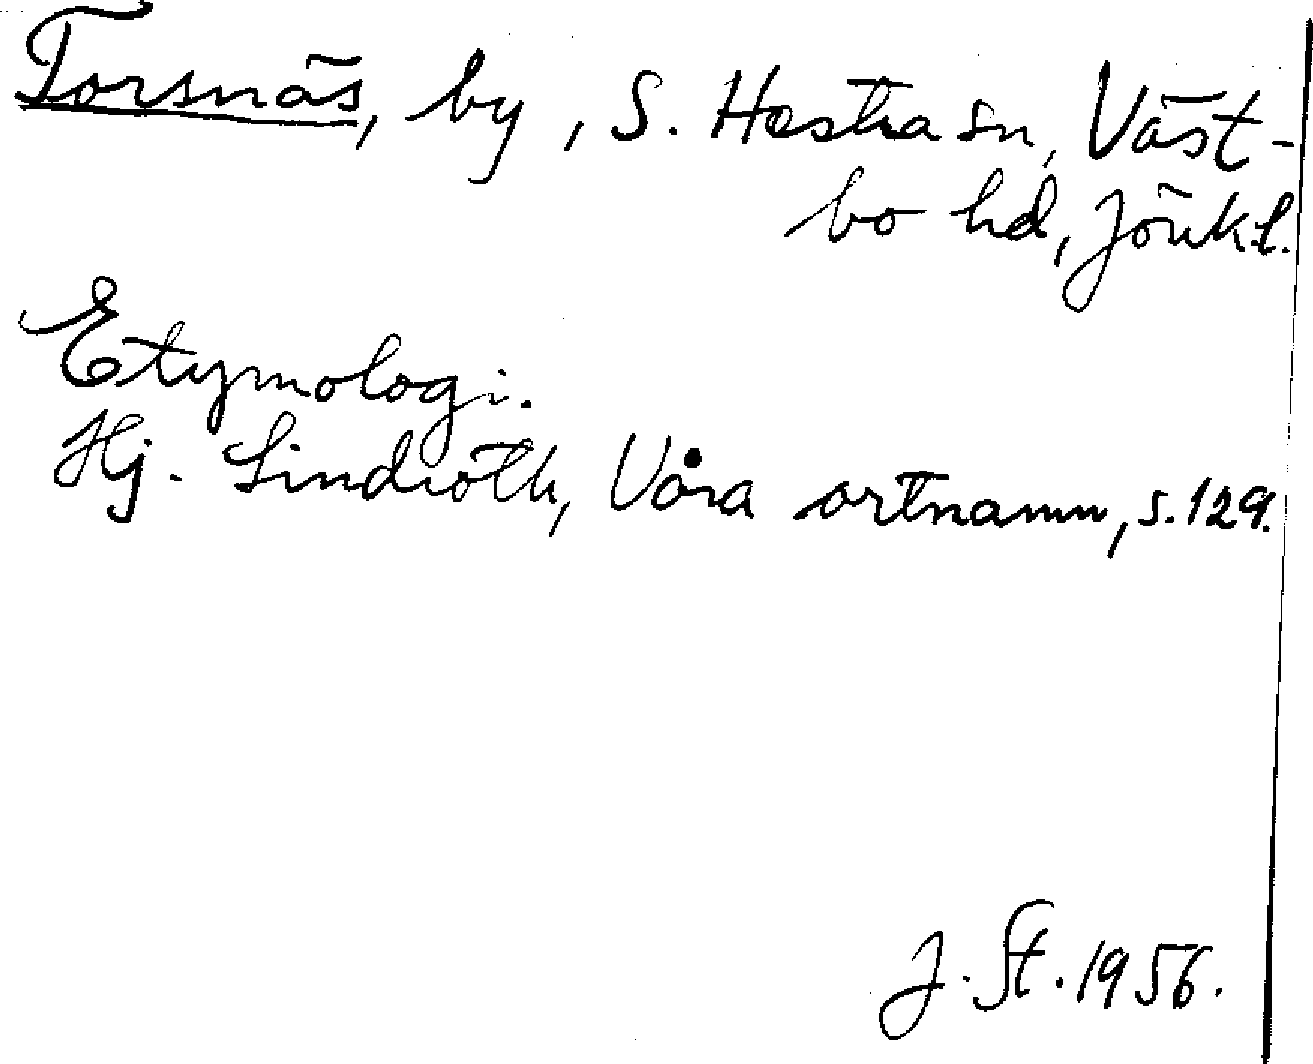 Torsnäs, by, S. Hestra sn, Väst-
bo hd, Jönk.l.
Etymologi.
Hj. Lindroth, Våra ortnamn, s. 129.
J. St. 1956.